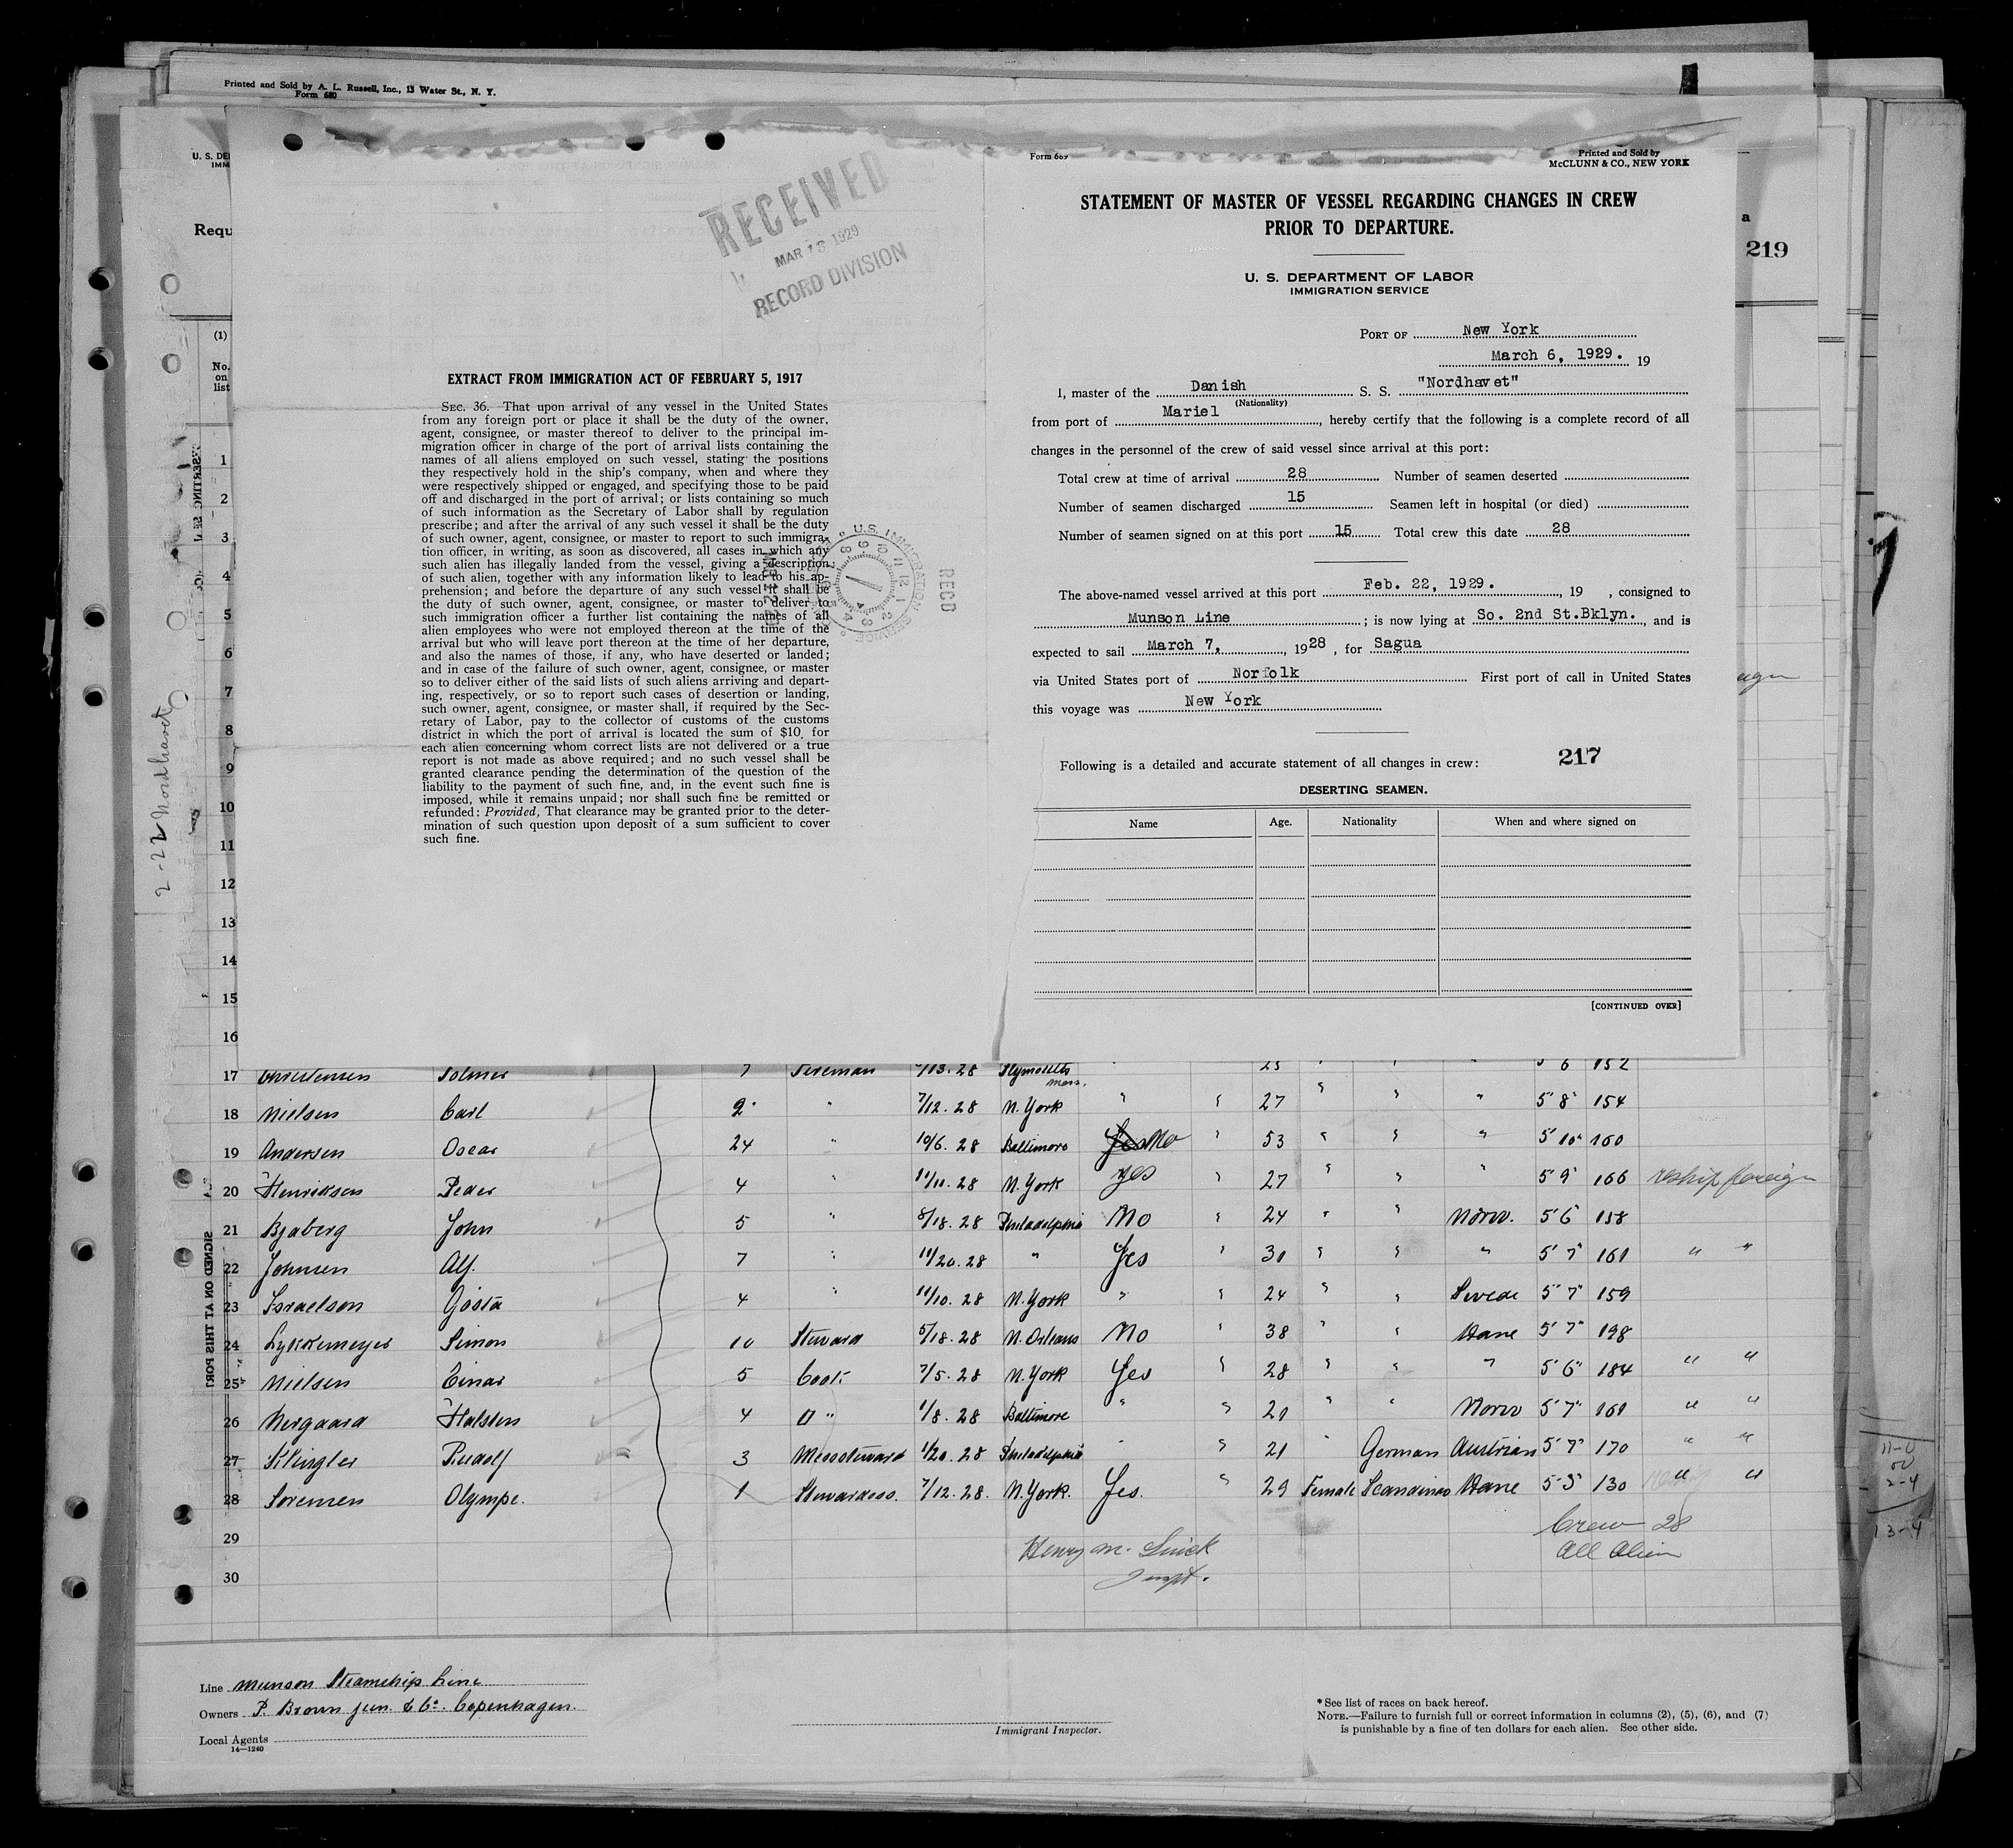 Printed and Sold by A. L. Russell, Inc., 13 Water St., N. Y.
Form 680
U. S. DE
IMM
Requ
a
219
(1)
No.
on
list
RECEIVED
MAR 13 1929
RECORD DIVISION
EXTRACT FROM IMMIGRATION ACT OF FEBRUARY 5, 1917
SEC. 36. That upon arrival of any vessel in the United States
from any foreign port or place it shall be the duty of the owner,
agent, consignee, or master thereof to deliver to the principal im-
migration officer in charge of the port of arrival lists containing the
names of all aliens employed on such vessel, stating the positions
they respectively hold in the ship's company, when and where they
were respectively shipped or engaged, and specifying those to be paid
off and discharged in the port of arrival; or lists containing so much
of such information as the Secretary of Labor shall by regulation
prescribe; and after the arrival of any such vessel it shall be the duty
of such owner, agent, consignee, or master to report to such immigra-
tion officer, in writing, as soon as discovered, all cases in which any
such alien has illegally landed from the vessel, giving a description
of such alien, together with any information likely to lead to his ap-
prehension; and before the departure of any such vessel it shall be
the duty of such owner, agent, consignee, or master to deliver to
such immigration officer a further list containing the names of all
alien employees who were not employed thereon at the time of the
arrival but who will leave port thereon at the time of her departure,
and also the names of those, if any, who have deserted or landed;
and in case of the failure of such owner, agent, consignee, or master
so to deliver either of the said lists of such aliens arriving and depart-
ing, respectively, or so to report such cases of desertion or landing,
such owner, agent, consignee, or master shall, if required by the Sec-
retary of Labor, pay to the collector of customs of the customs
district in which the port of arrival is located the sum of $10 for
each alien concerning whom correct lists are not delivered or a true
report is not made as above required; and no such vessel shall be
granted clearance pending the determination of the question of the
liability to the payment of such fine, and, in the event such fine is
imposed, while it remains unpaid; nor shall such fine be remitted or
refunded: Provided, That clearance may be granted prior to the deter-
mination of such question upon deposit of a sum sufficient to cover
such fine.
U.S. IMMIGRATION SERVICE
RECD
Form 689
Printed and Sold by
McCLUNN & CO., NEW YORK
STATEMENT OF MASTER OF VESSEL REGARDING CHANGES IN CREW
PRIOR TO DEPARTURE.
U. S. DEPARTMENT OF LABOR
IMMIGRATION SERVICE
PORT OF New York
March 6, 1929. 19
I, master of the Danish S. S. "Nordhavet"
(Nationality)
from port of Mariel, hereby certify that the following is a complete record of all
changes in the personnel of the crew of said vessel since arrival at this port:
Total crew at time of arrival 28 Number of seamen deserted
Number of seamen discharged 15 Seamen left in hospital (or died)
Number of seamen signed on at this port 15 Total crew this date 28
The above-named vessel arrived at this port Feb. 22, 1929., 19 , consigned to
Munson Line; is now lying at So. 2nd St.Bklyn., and is
expected to sail March 7, , 1928, for Sagua
via United States port of Norfolk First port of call in United States
this voyage was New York
217
Following is a detailed and accurate statement of all changes in crew:
DESERTING SEAMEN.
Name Age. Nationality When and where signed on
[CONTINUED OVER]
2-22 Nordhavet
1
2
3
4
5
6
7
8
9
10
11
12
13
14
15
16
17 Christensen 7 Fireman /13.28 Plymouth Mass. 25 " " " 5 6 152
18 Nielsen Carl 2 " 7/12.28 N. York " " 27 " " " 5'8" 154
19 Andersen Oscar 24 " 10/6.28 Baltimore Yes No " 53 " " " 5'10" 160
20 Henriksen Peder 4 " 11/11.28 N. York Yes " 27 " " " 5'9" 166 reship foreign
21 Bjaberg John 5 " 8/18.28 Philadelphia No " 24 " " Norw. 5'6" 158
22 Johnsen Alf. 7 " 11/20.28 " Yes " 30 " " " 5'7" 161 " "
23 Israelson Gösta 4 " 11/10.28 N. York " " 24 " " Swede 5'7" 159
24 Lykkemeyer Simon 10 Steward 5/18.28 N. Orleans No " 38 " " Dane 5'7" 198
25 Nielsen Einar 5 Cook 7/5.28 N. York Yes " 28 " " " 5'6" 184 " "
26 Nergaard Halsten 4 " 1/8.28 Baltimore " " 21 " " Norw 5'7" 161 " "
27 Klingler Rudolf 3 Messsteward 1/20.28 Philadelphia " " 21 " German Austrian 5'7" 170 " "
28 Sorensen Olympe. 1 Stewardess. 7/12.28. N. York. Yes. " 29 Female Scandinav Dane 5'5" 130 " "
29
30
Crew 28
All Alien
Henry M.
Inspt.
SIGNED ON AT THIS PORT
11-0
2-4
13-4
Line Munson Steamship Line
Owners P. Brown jun. & Co. Copenhagen.
Local Agents
14—1240
Immigrant Inspector.
*See list of races on back hereof.
NOTE.—Failure to furnish full or correct information in columns (2), (5), (6), and (7)
is punishable by a fine of ten dollars for each alien. See other side.